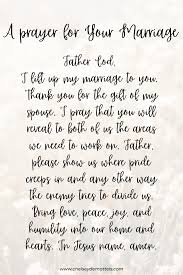 A prayer for Your Marriage
Father God,
I lift up my marriage to you.
Thank you for the gift of my
spouse. I pray that you will
reveal to both of us the areas
we need to work on. Father,
please show us where pride
creeps in and any other way
the enemy tries to divide us.
Bring love, peace, joy, and
humility into our home and
hearts. In Jesus name, amen.
www.chelseydematteis.com